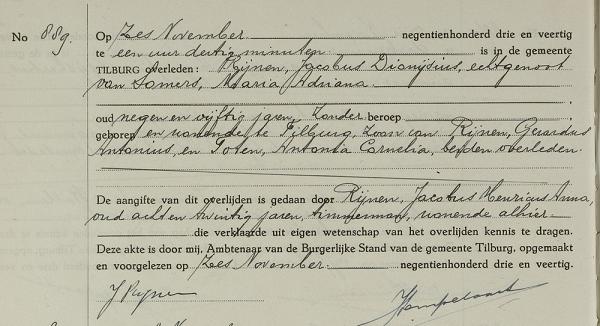 No 889.
Op Zes November negentienhonderd drie en veertig
te een uur dertig minuten is in de gemeente
TILBURG overleden: Rijnen, Jacobus Dionijsius, echtgenoot
van Somers, Maria Adriana
oud negen en vijftig jaren, Zonder beroep
geboren en wonende te Tilburg, Zoon van Rijnen, Gerardus
Antonius, en Joten, Antonia Cornelia, beiden overleden.
De aangifte van dit overlijden is gedaan door Rijnen, Jacobus Henricus Anna,
oud acht en twintig jaren, timmerman, wonende alhier
die verklaarde uit eigen wetenschap van het overlijden kennis te dragen.
Deze akte is door mij, Ambtenaar van de Burgerlijke Stand van de gemeente Tilburg, opgemaakt
en voorgelezen op Zes November. negentienhonderd drie en veertig.
J Rijnen